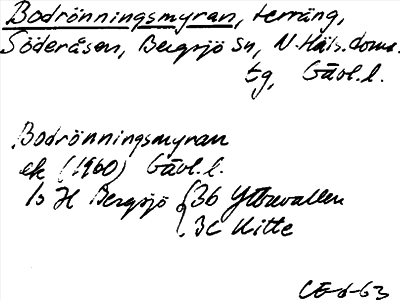 Bodrönningsmyran, terräng,
Söderåsen, Bergsjö sn, N. Häls. doms.
tg, Gävl. l.
Bodrönningsmyran
ek (1960) Gävl. l.
16 H Bergsjö { 3b Yttervallen
3c Kitte
CE-6-63